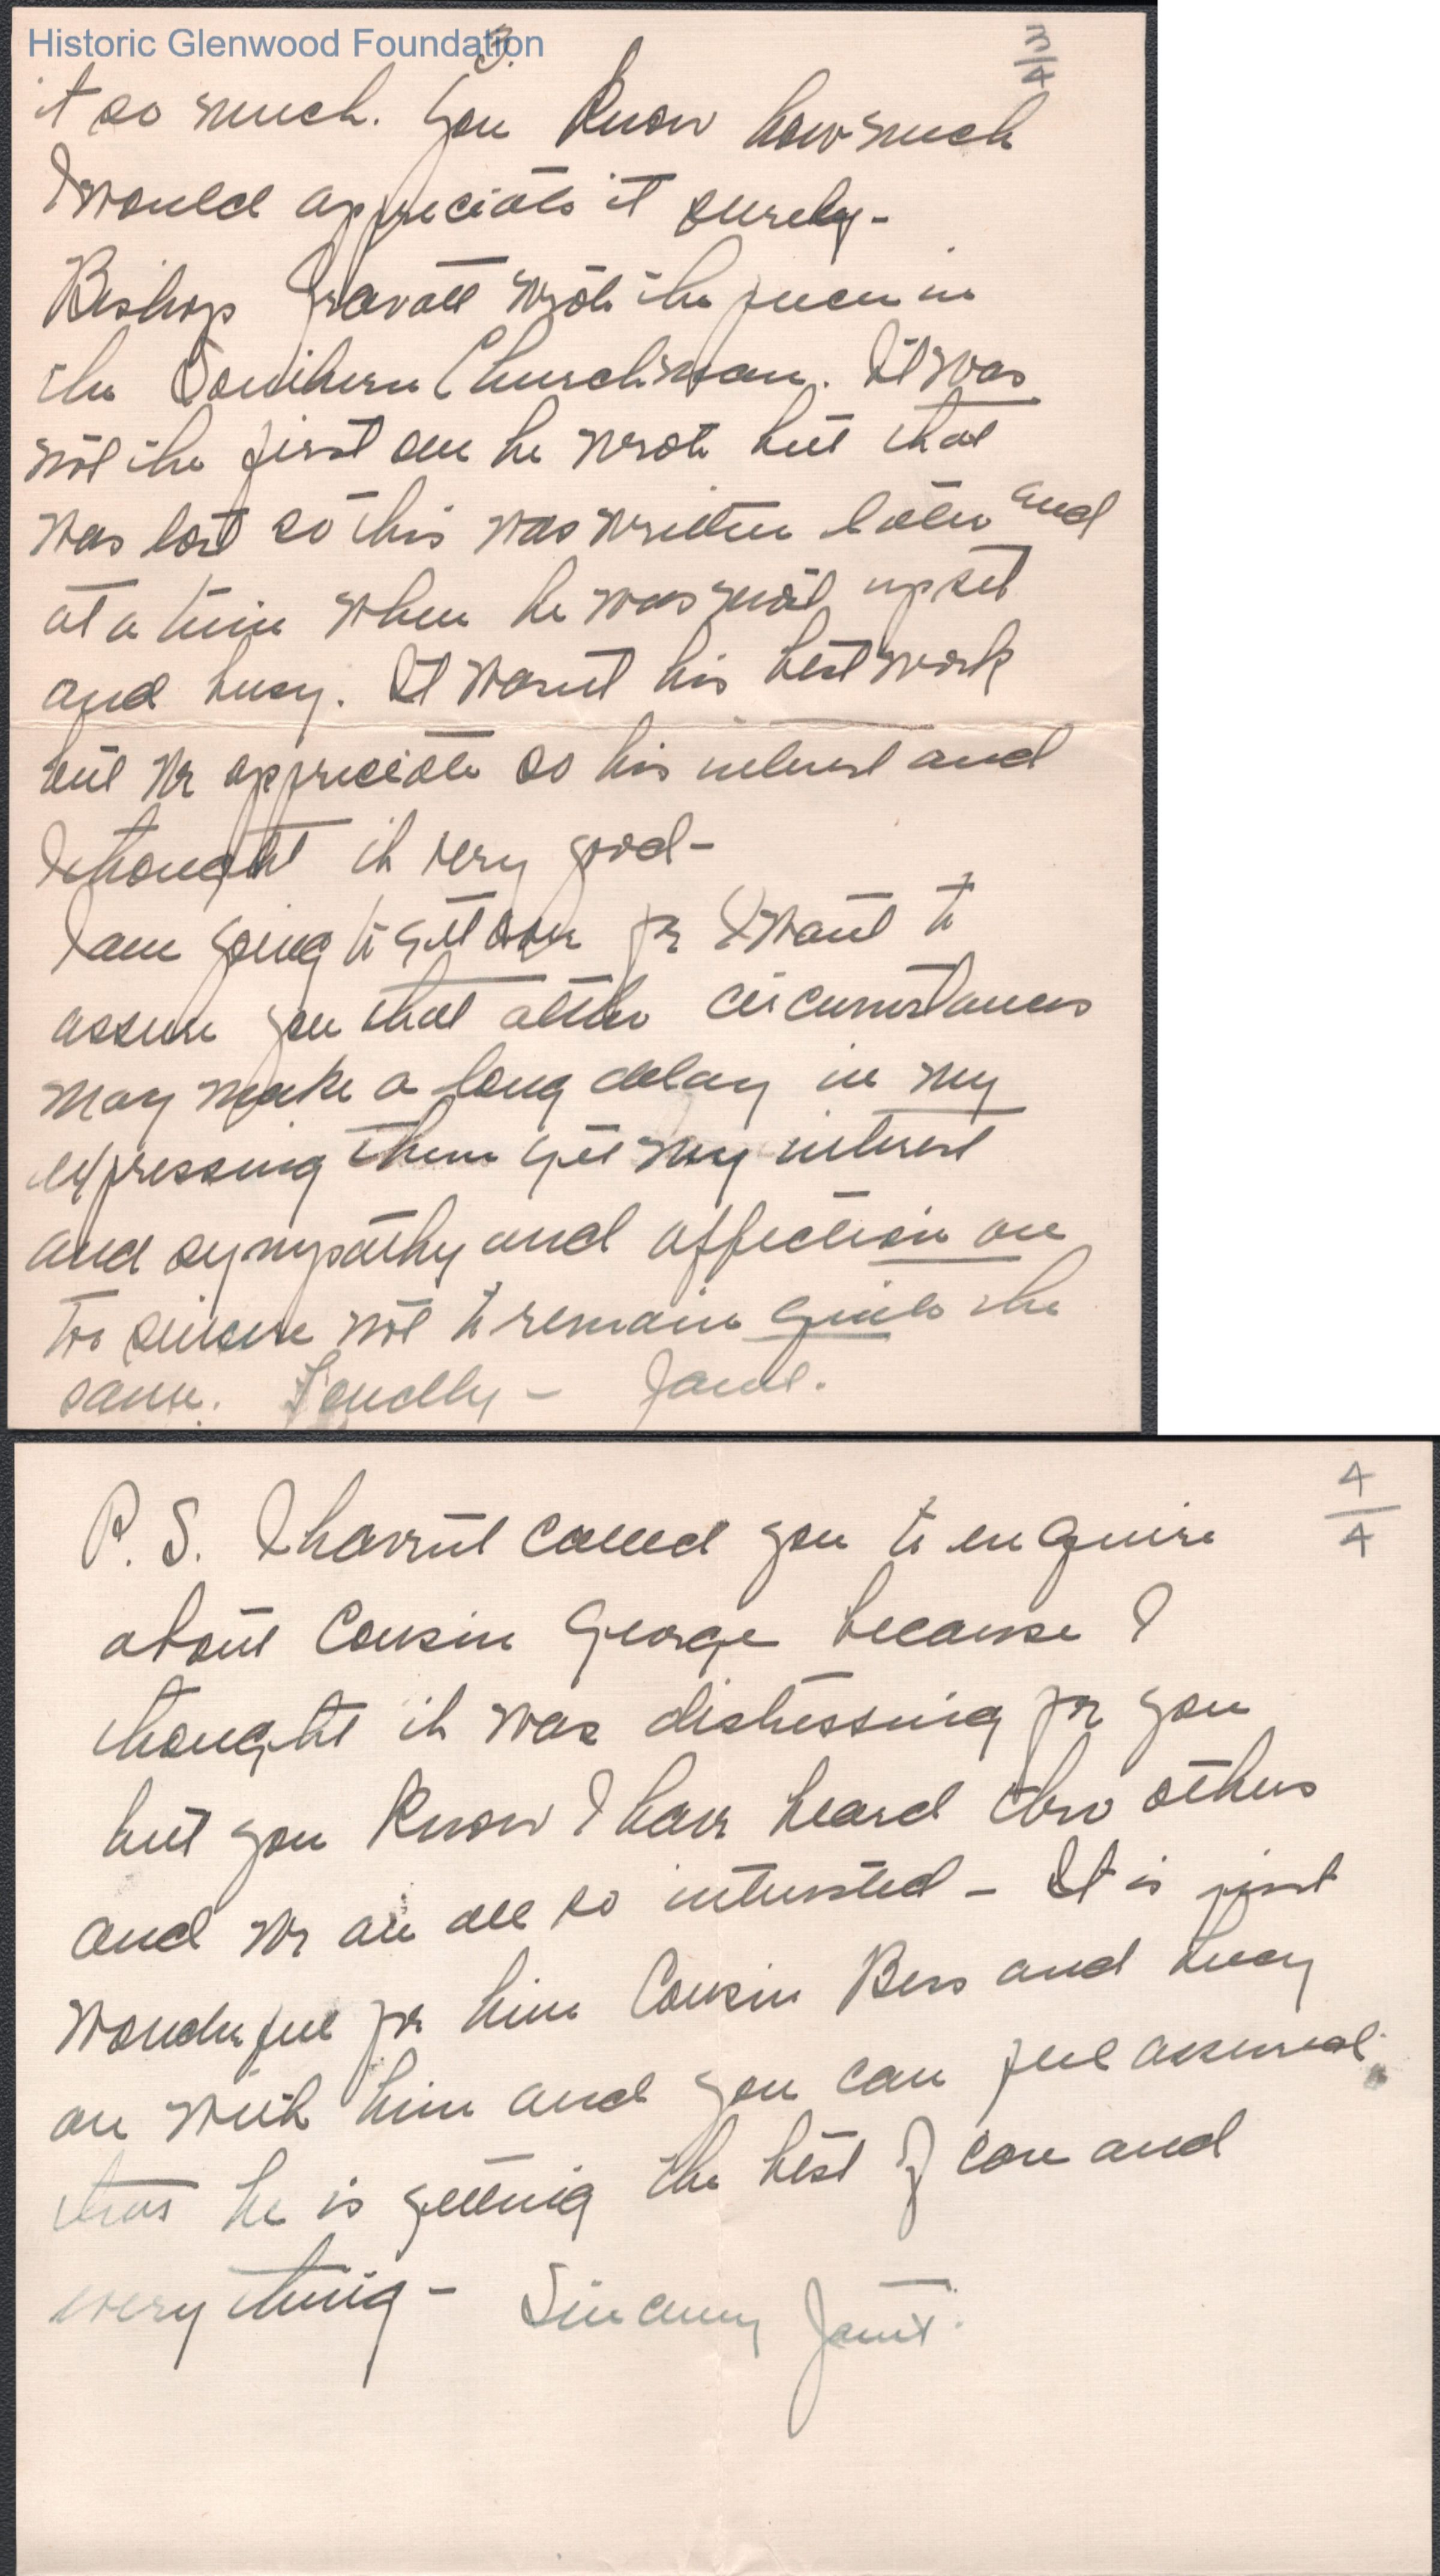 Historic Glenwood Foundation
3.
3/4
it so much. You know how much
I would appreciate it surely -
Bishop Gravatt wrote the piece in
the Southern Churchman. It was
not the first one he wrote but that
was lost so this was written later and
at a time when he was most upset
and busy. It wasn't his best work
but we appreciate so his interest and
I thought it very good -
I am going to get over for I want to
assure you that altho circumstances
may make a long delay in my
expressing them yet my interest
and sympathy and affection are
too sincere not to remain quite the
same. Fondly - Janet.
4/4
P. S. I havent called you to enquire
about Cousin George because I
thought it was distressing for you
but you know I have heard thro others
and we are all so interested - It is just
wonderful for him Cousin Bess and Lucy
are with him and you can feel assured
that he is getting the best of care and
every thing - Sincerely Janet.